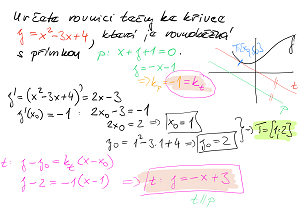 Určete rovnici tečny ke křivce
y = x²-3x+4, která je rovnoběžná
s přímkou p: x+y+1=0.
y = -x-1
⇒ kp = -1 = kt
y' = (x²-3x+4)' = 2x-3
y'(x₀) = -1 : 2x₀-3 = -1
2x₀ = 2 ⇒ x₀=1
y₀ = 1²-3·1+4 ⇒ y₀=2
⇒ T=[1;2]
t: y-y₀ = kt(x-x₀)
y-2 = -1(x-1) ⇒ t: y = -x+3
t∥p